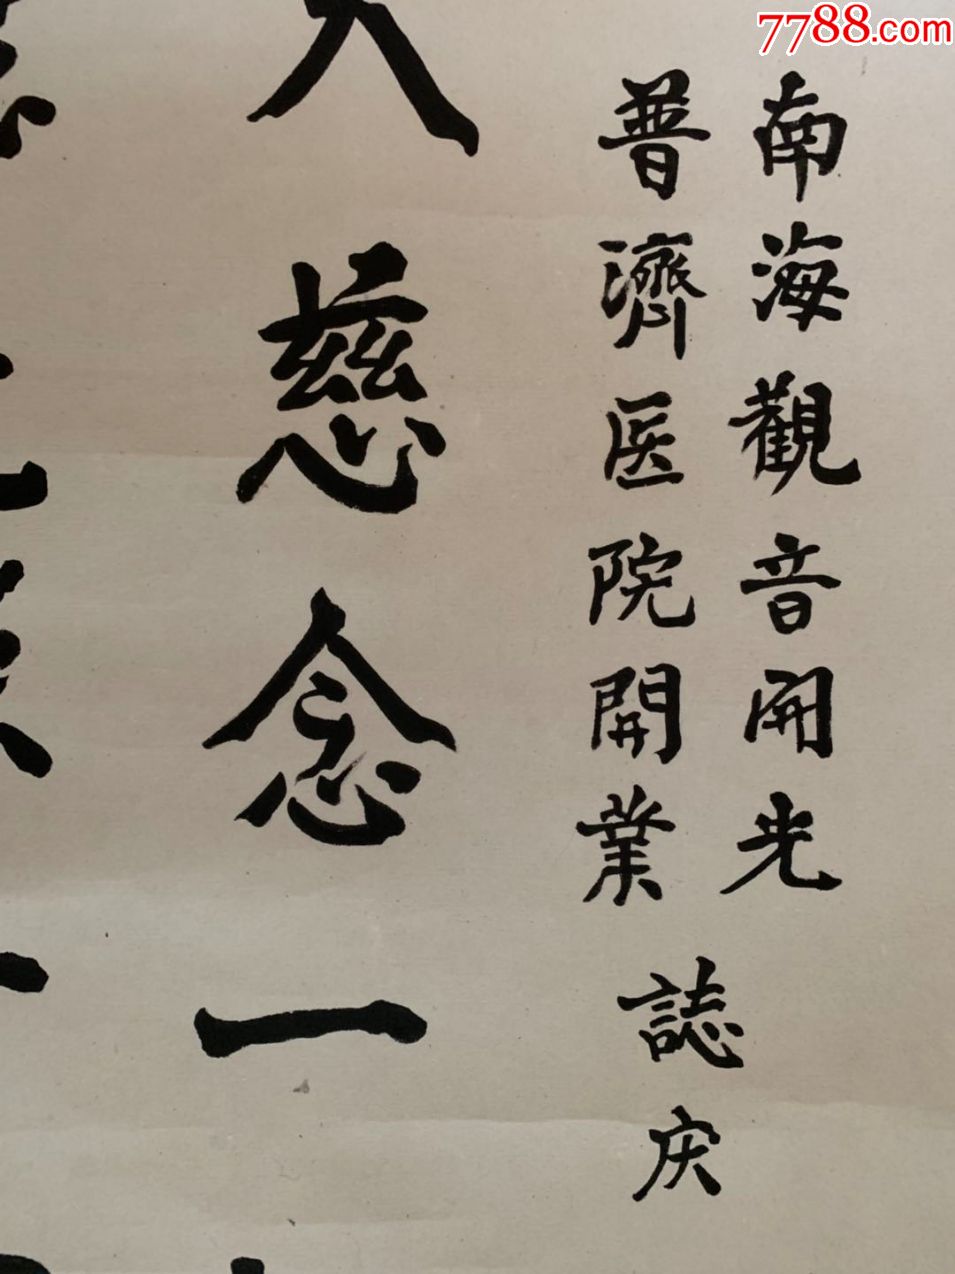 7788.com
南海觀音開光
普濟医院開業
誌庆
入慈念一